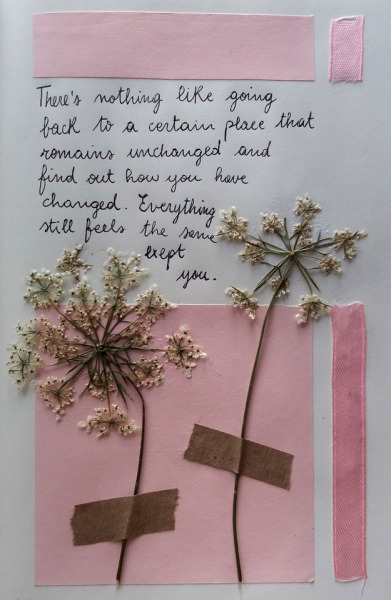 There's nothing like going
back to a certain place that
romains unchanged and
find out how you have
changed. Everything
still feels the same
exept
you.